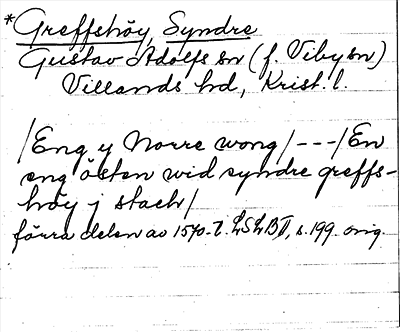 *Greffshöy, Syndre
Gustav Adolfs sn (f. Viby sn)
Villands hd, Krist. l.
/Eng y Norre wong/---/En
eng östen wid syndre greffs-
höy j stack/
förra delen av 1570-t. LSLB II, s. 199. orig.